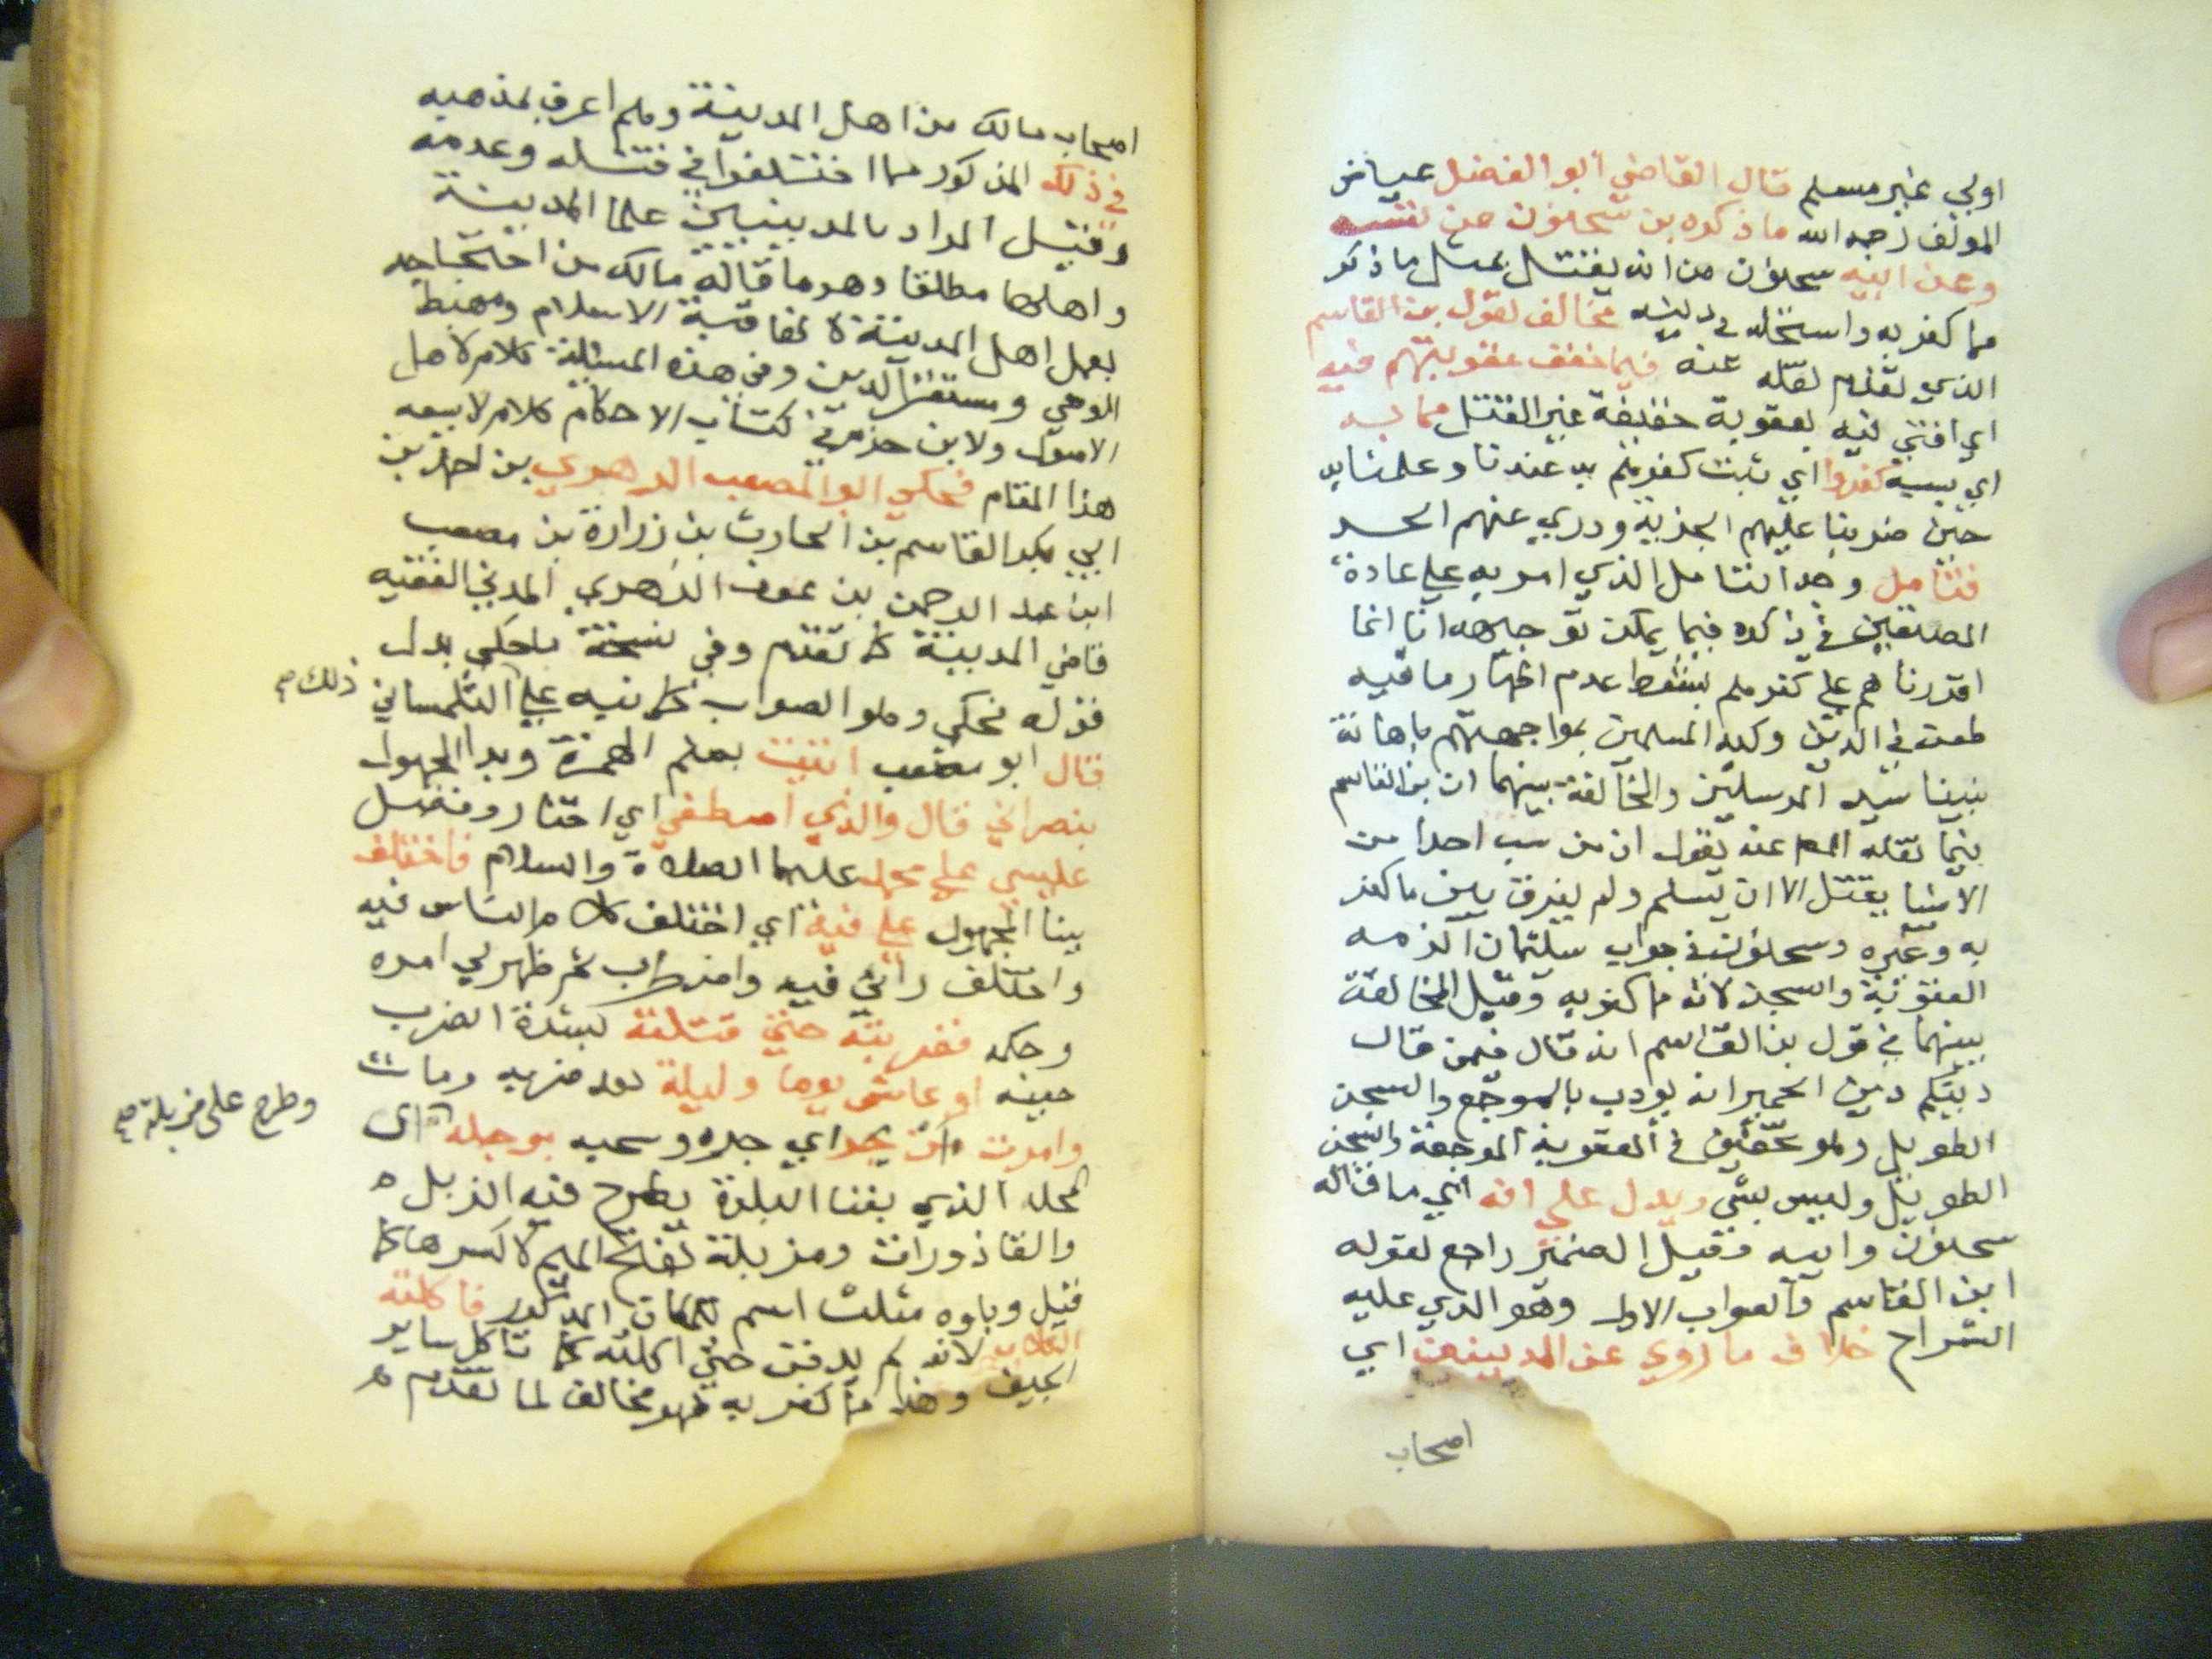 اوبي غيرمسلم قال القاضي ابو الفضل عياض
المولف رحمه الله ما ذكره بن سحنون عن نفسه
وعن ابيه سحنون من انه يقتل بمثل ما ذكر
مما كفر به واستحله في دينه مخالف لقول بن القاسم
الذي تقدم نقله عنه فيما خفف عقوبتهم فيه
اي افتى فيه بعقوبة خفيفة غير القتل مما به
اي بسببه كفروا اي ثبت كفرهم به عندنا وعلمنا به
حين ضربنا عليهم الجزية ودري عنهم الحد
فتامل وجه التامل الذي امر به على عادة
المصنفين في ذكره فيما يمكن توجيهه انا انما
اقررناهم على كفرهم بشرط عدم اظهار ما فيه
طعن في الدين وكيد المسلمين بمواجهتهم باهانة
نبينا سيد المرسلين والمخالفة بينهما ان بن القاسم
فيما نقله المص عنه يقول ان من سب احدا من
الانبيا يقتل الا ان يسلم ولم يفرق بين ما كفر
به وغيره وسحنون في جواب سليمان الزمه
العقوبة والسجن لانه مما كفر به وقيل المخالفة
بينهما في قول بن القاسم انه قال فيمن قال
دينكم دين الحمير انه يودب بالموجع والسجن
الطويل ولموعقيق في العقوبة الموجعة والسجن
الطويل وليس بشي ويدل على انه اي ما قاله
سحنون وابيه وقيل الضمير راجع لقوله
ابن القاسم والصواب الاول وهو الذي عليه
الشراح خلاف ما روي عن المدينيين اي
اصحاب
اصحاب مالك من اهل المدينة ولم اعرف لمذهبه
في ذلك المذكور مما اختلفوا في قتله وعدمه
وقيل المراد بالمدينيين علما المدينة
واهلها مطلقا وهو ما قاله مالك من احتجاجه
بعمل اهل المدينة لانها قبة الاسلام ومهبط
الوحي ومستقر الدين وفي هذه المسئلة كلام لاهل
الاصول ولابن حزم في كتاب الاحكام كلام لا يسعه
هذا المقام فحكى ابو المصعب الزهري بن احمد بن
ابي بكر القاسم بن الحارث بن زرارة بن مصعب
ابن عبد الرحمن بن عوف الزهري المدني الفقيه
قاضي المدينة كما تقدم وفي نسخة بلحكي بدل
قوله فحكي وهو الصواب كما نبه على التلمساني
ذلك صح
قال ابو مصعب اتيت بضم الهمزة وبنا المجهول
بنصراني قال والذي اصطفى اي اختار وفضل
عليسي على محمد عليهما الصلاة والسلام فاختلف
ببنا المجهول علي فيه اي اختلف كلام الناس فيه
واختلف رائي فيه واضطراب ثم ظهر لي امره
وحكمه فضربته حتى قتلته لشدة الضرب
حينه او عاش يوما وليلة بعد ضربه ومات
وامرت من يجر اي جره وسحبه برجله اى
وطرح على مزبلة صح
المحله الذي بفنا البلدة يطرح فيه الزبل
والقاذورات ومزبلة بفتح الميم لا كسرها كما
قيل وباوه مثلث اسم للمكان المذكور فاكلته
الكلاب لانه لم يدفن حتى اكلته كما تاكل ساير
الجيف وهذا مما كفر به فهو مخالف لما تقدم